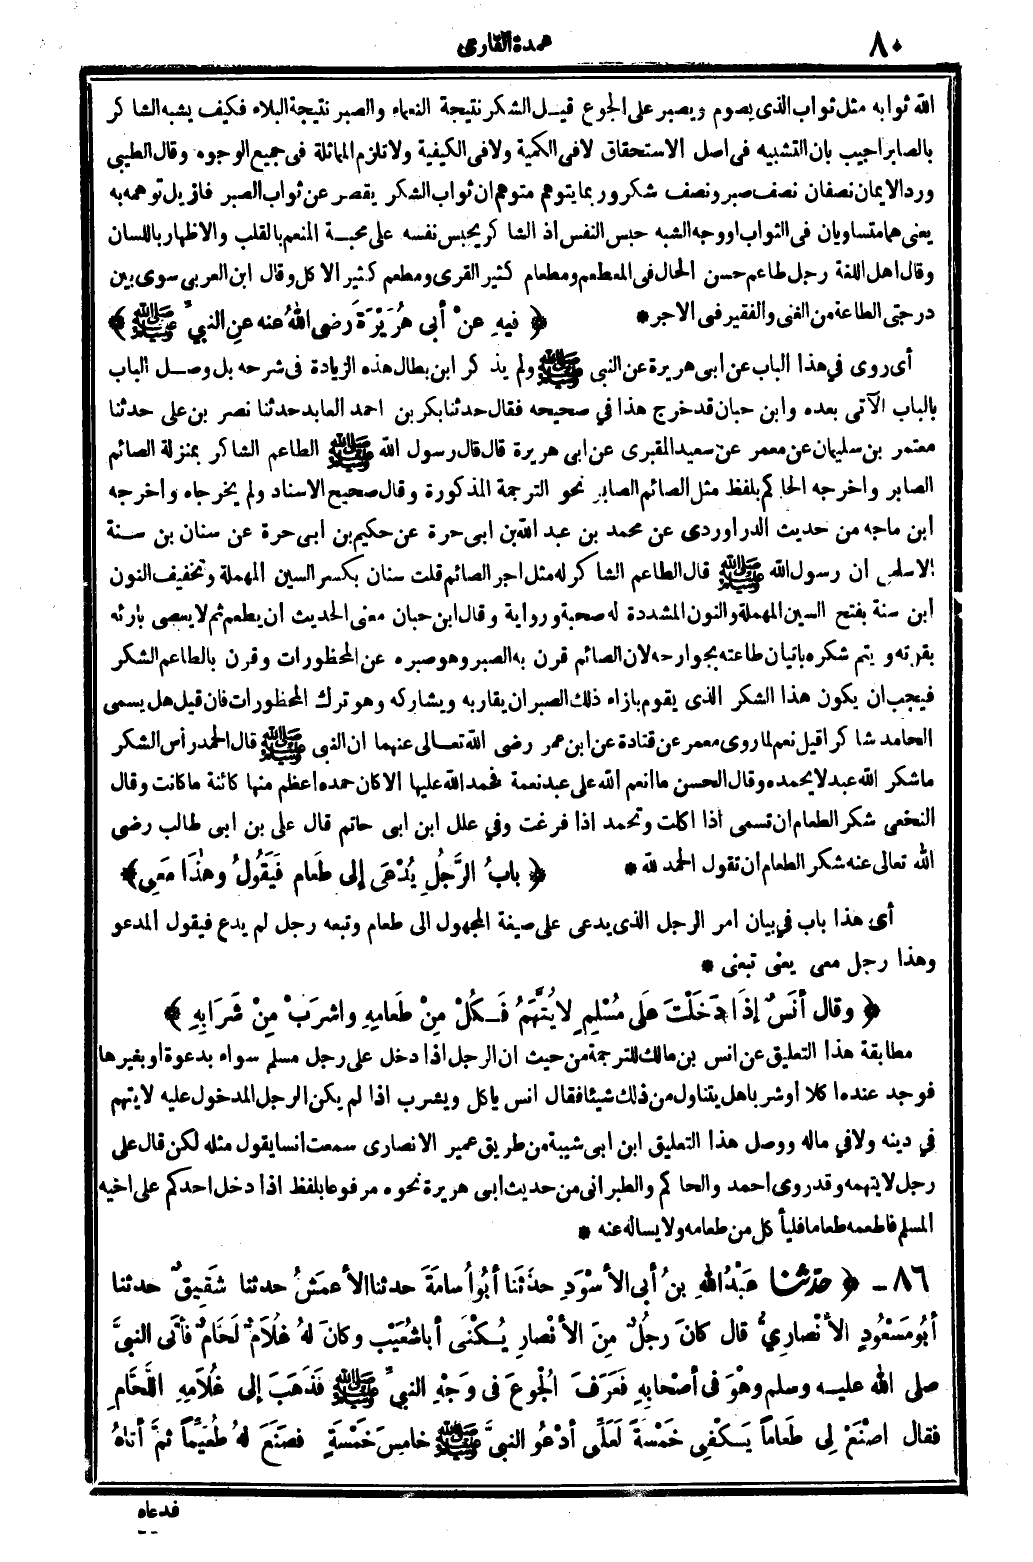 ٨٠
عمدة القارى
الله ثوابه مثل ثواب الذى يصوم ويصبر على الجوع قيـل الشكر نتيجة النعماء والصبر نتيجة البلاء فكيف يشبه الشا كر
بالصابر اجيب بان التشبيه فى اصل الاستحقاق لافى الكمية ولافى الكيفية ولا تلزم المماثلة فى جميع الوجوه وقال الطيبى
ورد الايمان نصفان نصف صبر ونصف شكر وربما يتوهم متوهم ان ثواب الشكر يقصر عن ثواب الصبر فازيل توهمه به
يعنى هما متساويان فى الثواب او وجه الشبه حبس النفس اذ الشا كر يحبس نفسه على محبـة المنعم بالقلب والاظهار باللسان
وقال اهل اللغة رجل طاعم حسن الحال فى المطعم ومطعام كثير القرى ومطعم كثير الا كل وقال ابن العربى سوى بين
درجتى الطاعة من الغنى والفقير فى الاجر *
﴿ فِيهِ عنْ أبى هُرَيْرَةَ رضى اللهُ عنه عنِ النبيِّ ﷺ ﴾
أى روى في هذا الباب عن ابى هريرة عن النبى ﷺ ولم يذ كر ابن بطال هذه الزيادة فى شرحه بل وصـل الباب
بالباب الآتى بعده وابن حبان قد خرج هذا في صحيحه فقال حدثنا بكر بن احمد العابد حدثنا نصر بن على حدثنا
معتمر بن سليمان عن معمر عن سعيد المقبرى عن ابى هريرة قال قال رسول الله ﷺ الطاعم الشاكر بمنزلة الصائم
الصابر واخرجه الحا كم بلفظ مثل الصائم الصابر نحو الترجمة المذكورة وقال صحيح الاسناد ولم يخرجاه واخرجه
ابن ماجه من حديث الدراوردى عن محمد بن عبد الله بن ابى حرة عن حكيم بن ابى حرة عن سنان بن سـنة
الاسلمى ان رسول الله ﷺ قال الطاعم الشا كر له مثل اجر الصائم قلت سنان بكسر السين المهملة وتخفيف النون
ابن سنة بفتح السين المهملة والنون المشددة له صحبة ورواية وقال ابن حبان معنى الحديث ان يطعم ثم لا يعصى بارئه
بقوته و يتم شكره باتيان طاعته بجوارحه لان الصائم قرن به الصبر وهو صبره عن المحظورات وقرن بالطاعم الشكر
فيجب ان يكون هذا الشكر الذى يقوم بازاء ذلك الصبر ان يقاربه ويشاركه وهو ترك المحظورات فان قيل هل يسمى
الحامد شا كرا قيل نعم لما روى معمر عن قتادة عن ابن عمر رضى الله تعـالى عنهما ان النبى ﷺ قال الحمد رأس الشكر
ماشكر الله عبد لا يحمده وقال الحسن ما انعم الله على عبد نعمة فحمد الله عليها الا كان حمده اعظم منها كائنة ما كانت وقال
النخعى شكر الطعام ان تسمى اذا اكلت وتحمد اذا فرغت وفي علل ابن ابى حاتم قال على بن ابى طالب رضى
الله تعالى عنه شكر الطعام ان تقول الحمد لله *
﴿ بابُ الرَّجُلِ يُدْعَى إلى طَعَامٍ فَيَقُولُ وهٰذَا مَعِى ﴾
أى هذا باب في بيان امر الرجل الذى يدعى على صيغة المجهول الى طعام وتبعه رجل لم يدع فيقول المدعو
وهذا رجل معى يعنى تبعنى *
﴿ وقال أنَسٌ إذَا دَخَلْتَ عَلَى مُسْلِمٍ لا يُتَّهَمُ فَـكُلْ مِنْ طَعامِهِ واشْرَبْ مِنْ شَرَابِهِ ﴾
مطابقة هذا التعليق عن انس بن مالك للترجمة من حيث ان الرجل اذا دخل على رجل مسلم سواء بدعوة او بغيرها
فوجد عنده ا كلا أو شربا هل يتناول من ذلك شيئا فقال انس يا كل ويشرب اذا لم يكن الرجل المدخول عليه لا يتهم
في دينه ولا في ماله ووصل هذا التعليق ابن ابى شيبة من طريق عمير الانصارى سمعت انسا يقول مثله لكن قال على
رجل لا يتهمه وقد روى احمد والحا كم والطبرانى من حديث ابى هريرة نحوه مرفوعا بلفظ اذا دخل احدكم على اخيه
المسلم فاطعمه طعاما فليأ كل من طعامه ولا يساله عنه *
٨٦ - ﴿ حدثنا عَبْدُ اللهِ بنُ أبى الأسْوَدِ حدّثَنا أبُو أُسامَةَ حدثنا الأعمَشُ حدثنا شَقِيقٌ حدثنا
أبُو مَسْعُودٍ الأنْصارِيُّ قال كانَ رجُلٌ مِنَ الأنْصارِ يُـكْنَى أباشُعَيْبٍ وكانَ لهُ غُلَامٌ لَحَّامٌ فأتَى النبيَّ
صلى الله عليـه وسلم وهْوَ فى أصْحابِهِ فَعَرَفَ الجُوعَ فى وَجْهِ النبيِّ ﷺ فَذَهَبَ إلى غُلَامِهِ اللَّحَّامِ
فقال اصْنَعْ لِى طَعَامًا يَـكْفِى خَمْسَةً لَعَلِّى أدْعُو النبىَّ ﷺ خامِسَ خَمْسَةٍ فصَنَعَ لهُ طُعَيِّمًا ثمَّ أتاهُ
فدعاه